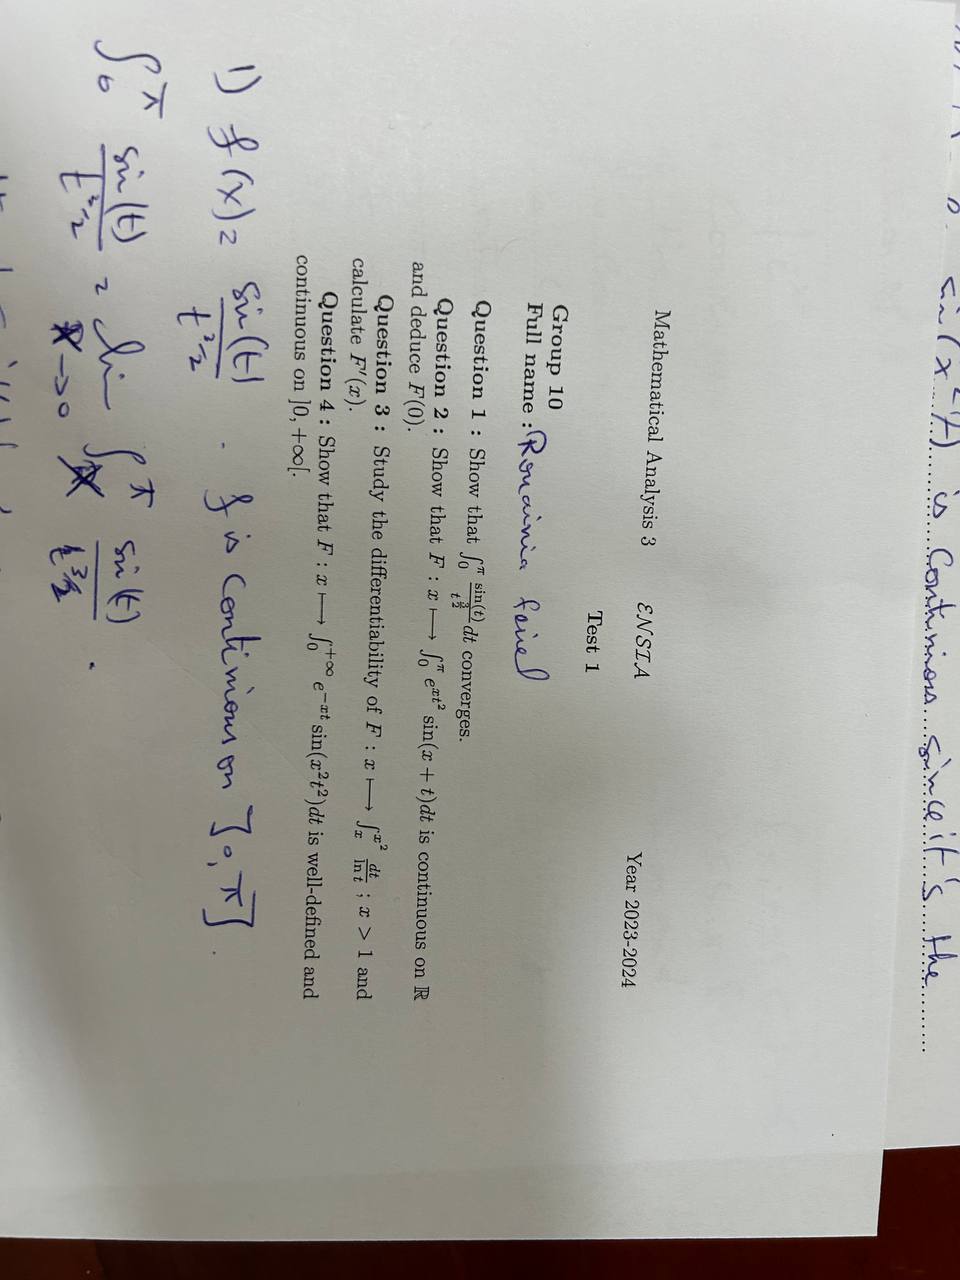 sin(x²t) is continuous since it's the
Mathematical Analysis 3 ENSIA Year 2023-2024
Test 1
Group 10
Full name :
Question 1 : Show that ∫₀^π sin(t)/t^(3/2) dt converges.
Question 2 : Show that F : x ⟼ ∫₀^π e^(xt²) sin(x + t)dt is continuous on ℝ
and deduce F(0).
Question 3 : Study the differentiability of F : x ⟼ ∫ₓ^(x²) dt/ln t ; x > 1 and
calculate F′(x).
Question 4 : Show that F : x ⟼ ∫₀^(+∞) e^(−xt) sin(x²t²)dt is well-defined and
continuous on ]0, +∞[.
1) f(x) = sin(t)/t^(3/2) . f is continuous on ]0, π] .
∫₀^π sin(t)/t^(3/2) = lim x→0 ∫ₓ^π sin(t)/t^(3/2) .